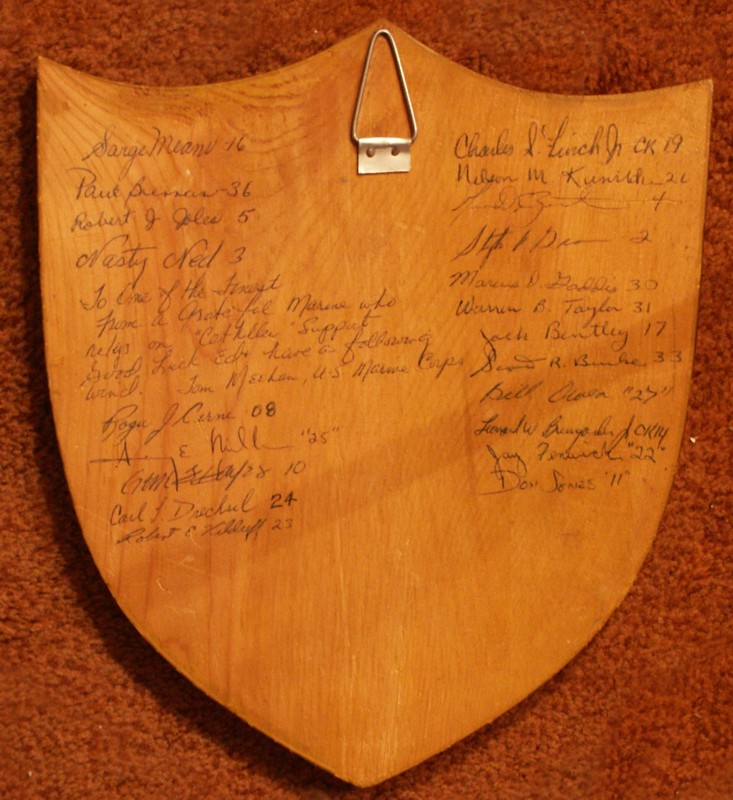 Sarge Means 16
Paul Brennan - 36
Robert J Joles 5
Nasty Ned 3
To One of the Finest
From a Grateful Marine who
relys on "Catkiller" Support
Good Luck Ed & have a following
wind. Tom Meehan, U.S Marine Corps
Roger J Cerne 08
E "25"
10
Carl L Drechsel 24
Robert E Kilduff 23
Charles S. Finch Jr CK 19
Nelson M 21
4
2
Marcus D. Gaddis 30
Warren B. Taylor 31
Jack Bentley 17
Scott R. Burke 33
Bill Owen "27"
Jr CK 14
Jay Fenwick "22"
Don Jones "11"